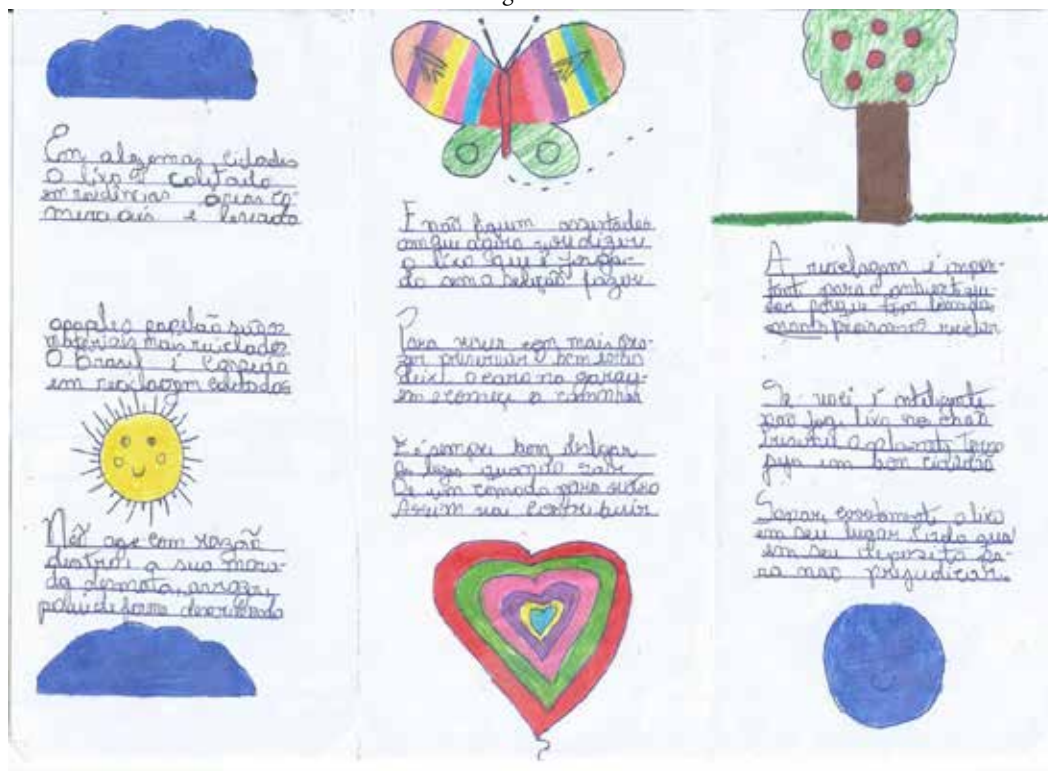 Em algumas cidades
O lixo é coletado
em residências areas co-
merciais e levado
opapel e papelão são os
materiais mais reciclados
O Brasil é campeão
em reciclagem coletados
Não age com razão
destroi a sua mora-
da desmata, arraza,
polui de forma
E não fiquem assustados
com que agora vou dizer
o lixo que é joga-
do uma seleção fazer
Para viver com mais pra-
zer preservar é bem
deixe o carro na garag-
em e começe a caminhar
E é sempre bom desligar
As luzes quando sair
De um comodo para outro
Assim vai contribuir
A reciclagem é impor-
tant para o ambiente aju-
dar porque
precisamos reciclar
Se você é inteligente
não jog lixo no chão
Preserve o planeta Terra
seja um bom cidadão
Separ corretament o lixo
em seu lugar
em seu deposito pa-
ra não prejudicar.